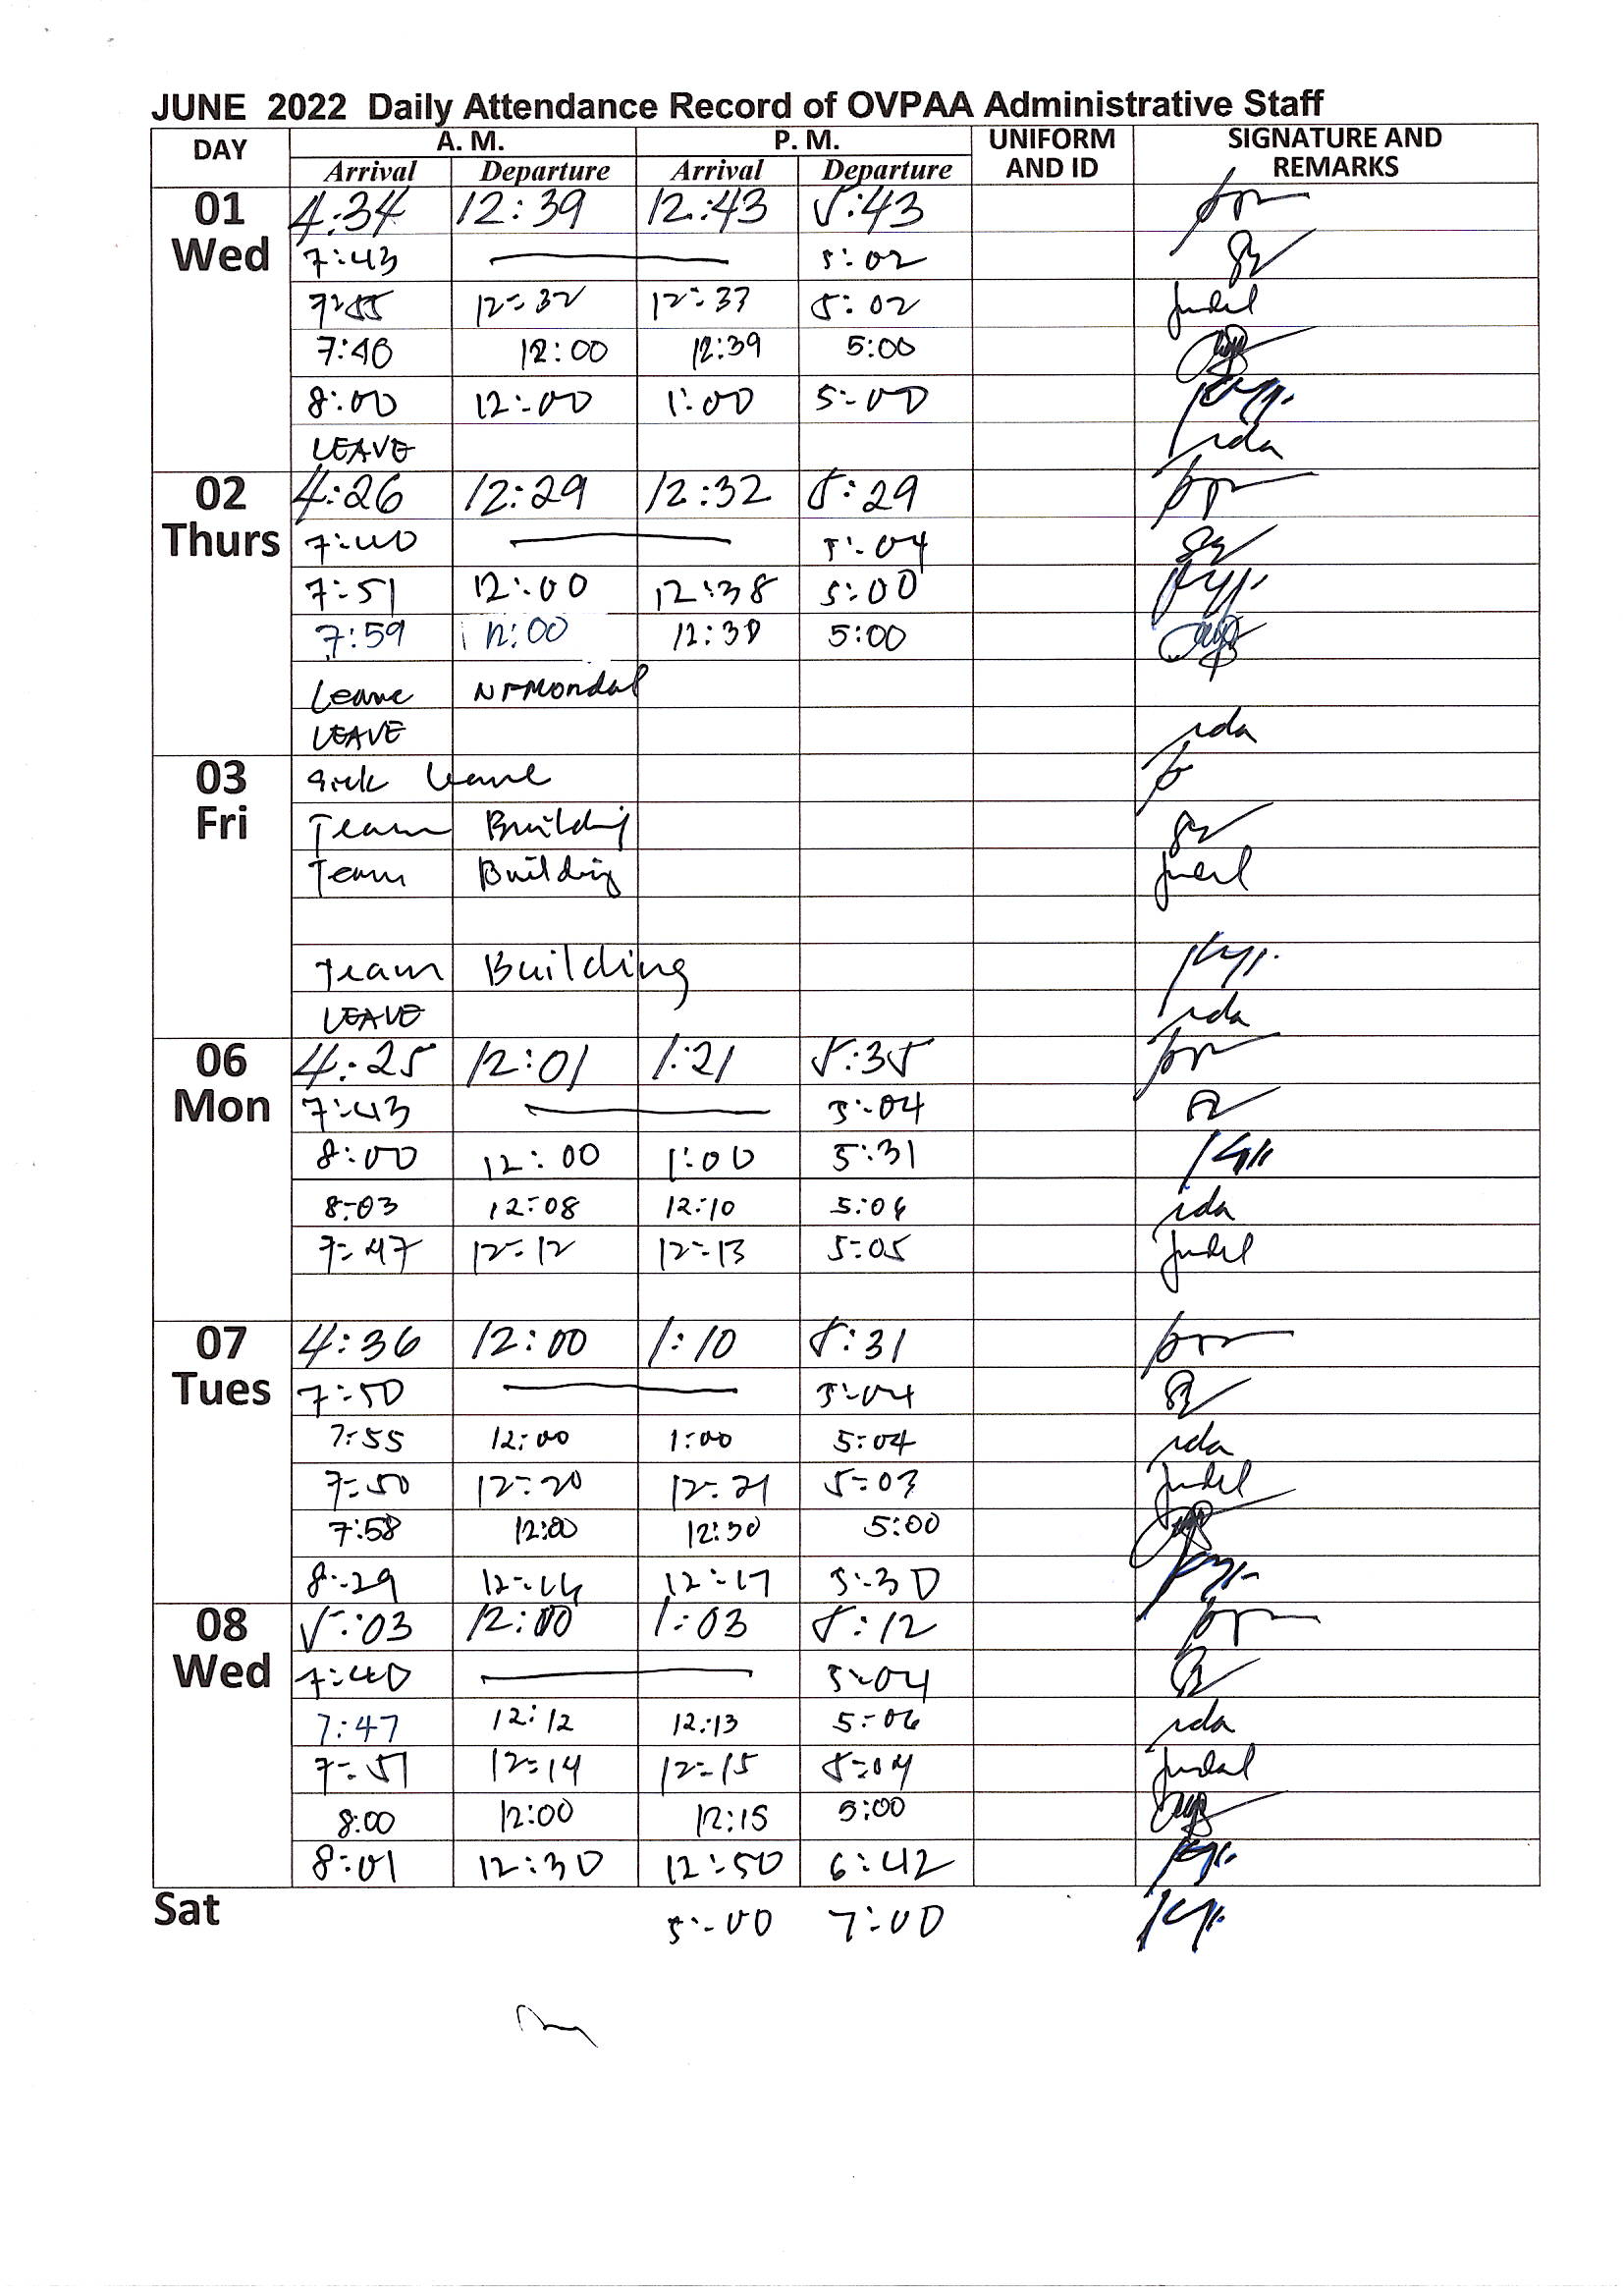 JUNE 2022 Daily Attendance Record of OVPAA Administrative Staff
DAY A. M. P. M. UNIFORM AND ID SIGNATURE AND REMARKS
Arrival Departure Arrival Departure
01 Wed
4:34 12:39 12:43 5:43
7:43 5:02
7:55 12:32 12:33 5:02 Judel
7:40 12:00 12:39 5:00
8:00 12:00 1:00 5:00
LEAVE ida
02 Thurs
4:26 12:29 12:32 5:29
7:40 5:04
7:51 12:00 12:38 5:00
7:59 12:00 12:30 5:00
Leave
LEAVE ida
03 Fri
Sick leave
Team Building
Team Building Judel
Team Building
LEAVE ida
06 Mon
4:25 12:01 1:21 5:35
7:43 5:04
8:00 12:00 1:00 5:31
8:03 12:08 12:10 5:06 ida
7:47 12:12 12:13 5:05 Judel
07 Tues
4:36 12:00 1:10 5:31
7:50 5:04
7:55 12:00 1:00 5:04 ida
7:50 12:20 12:21 5:03 Judel
7:58 12:00 12:30 5:00
8:29 12:16 12:17 5:30
08 Wed
5:03 12:00 1:03 5:12
7:40 5:04
7:47 12:12 12:13 5:06 ida
7:51 12:14 12:15 5:04 Judel
8:00 12:00 12:15 5:00
8:01 12:30 12:50 6:42
Sat 5:00 7:00